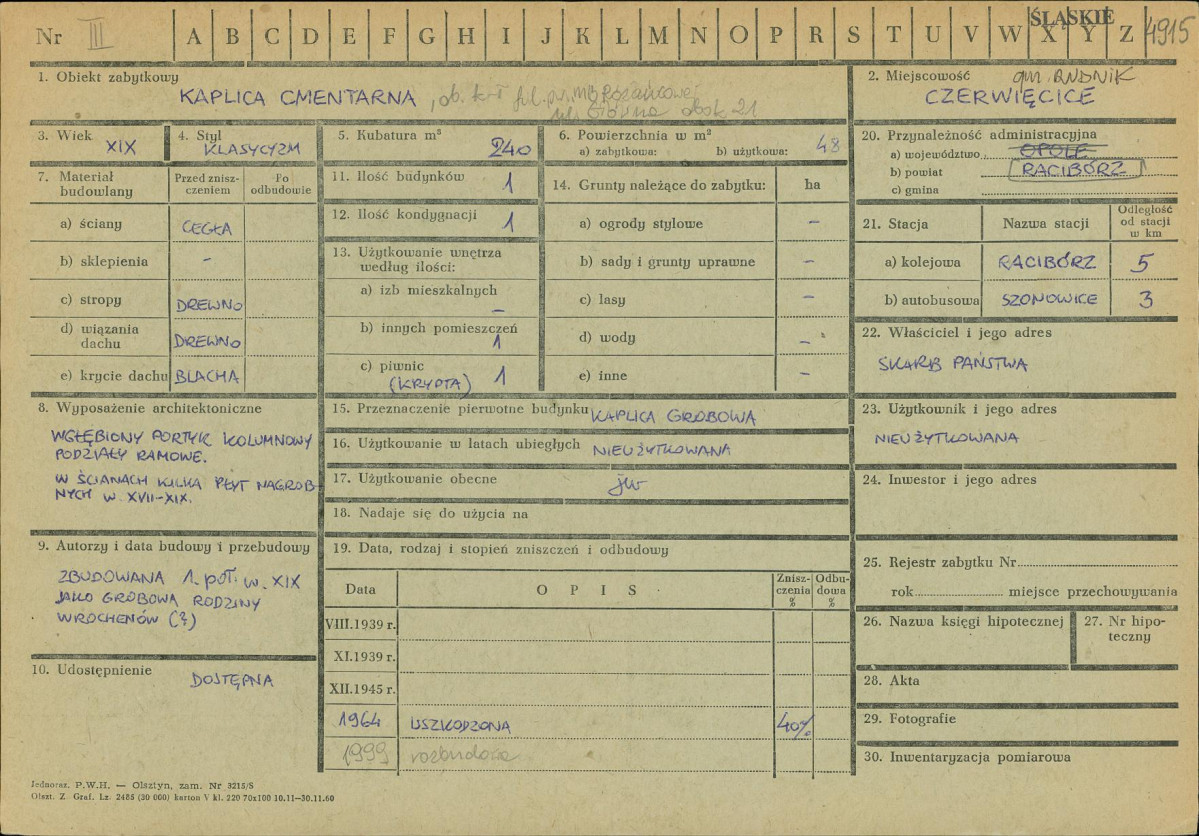 Nr III A B C D E F G H I J K L M N O P R S T U V W X Y Z 4915
ŚLĄSKIE
1. Obiekt zabytkowy
KAPLICA CMENTARNA, ob. k-ł fil. pw. MB Różańcowej
ul. Główna obok 21
2. Miejscowość gm. RUDNIK
CZERWIĘCICE
3. Wiek XIX
4. Styl KLASYCYZM
5. Kubatura m³ 240
6. Powierzchnia w m²
a) zabytkowa: b) użytkowa: 48
20. Przynależność administracyjna
a) województwo OPOLE
b) powiat RACIBÓRZ
c) gmina
7. Materiał budowlany
Przed zniszczeniem
Po odbudowie
a) ściany CEGŁA
b) sklepienia -
c) stropy DREWNO
d) wiązania dachu DREWNO
e) krycie dachu BLACHA
11. Ilość budynków 1
12. Ilość kondygnacji 1
13. Użytkowanie wnętrza według ilości:
a) izb mieszkalnych -
b) innych pomieszczeń 1
c) piwnic (KRYPTA) 1
14. Grunty należące do zabytku: ha
a) ogrody stylowe -
b) sady i grunty uprawne -
c) lasy -
d) wody -
e) inne -
21. Stacja Nazwa stacji Odległość od stacji w km
a) kolejowa RACIBÓRZ 5
b) autobusowa SZONOWICE 3
22. Właściciel i jego adres
SKARB PAŃSTWA
8. Wyposażenie architektoniczne
WGŁĘBIONY PORTYK KOLUMNOWY
PODZIAŁY RAMOWE.
W ŚCIANACH KILKA PŁYT NAGROB-
NYCH W. XVII-XIX.
15. Przeznaczenie pierwotne budynku KAPLICA GROBOWA
16. Użytkowanie w latach ubiegłych NIEUŻYTKOWANA
17. Użytkowanie obecne jw
18. Nadaje się do użycia na
23. Użytkownik i jego adres
NIEUŻYTKOWANA
24. Inwestor i jego adres
9. Autorzy i data budowy i przebudowy
ZBUDOWANA 1. poł. w. XIX
JAKO GROBOWA RODZINY
WROCHENÓW (?)
10. Udostępnienie
DOSTĘPNA
19. Data, rodzaj i stopień zniszczeń i odbudowy
Data OPIS Zniszczenia % Odbudowa %
VIII.1939 r.
XI.1939 r.
XII.1945 r.
1964 USZKODZONA 40%
1999 rozbudowa
25. Rejestr zabytku Nr
rok miejsce przechowywania
26. Nazwa księgi hipotecznej
27. Nr hipoteczny
28. Akta
29. Fotografie
30. Inwentaryzacja pomiarowa
Jednoraz. P.W.H. — Olsztyn, zam. Nr 3215/S
Olszt. Z. Graf. Lz. 2485 (30 000) karton V kl. 220 70x100 10.11—30.11.60